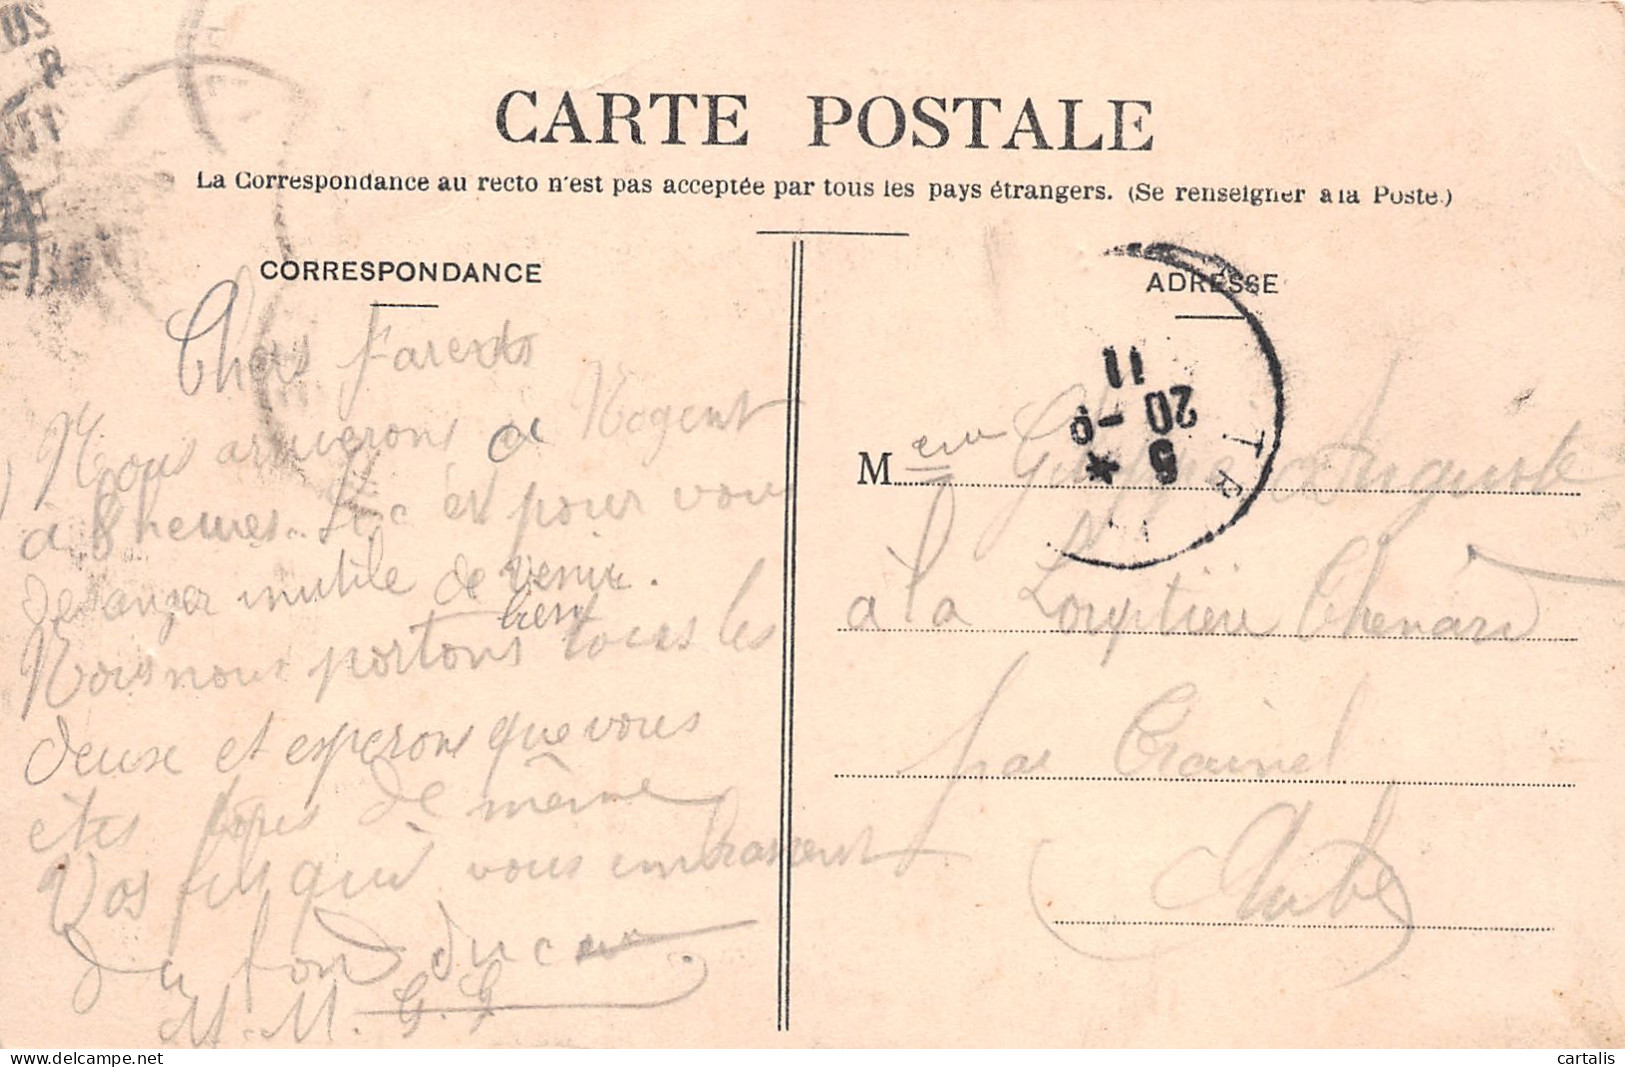 CARTE POSTALE
La Correspondance au recto n'est pas acceptée par tous les pays étrangers. (Se renseigner à la Poste.)
CORRESPONDANCE
Chers Parents
Nous arriverons a Nogent
à 8 heures. Si c'est pour vous
deranger inutile de venir.
Nous nous portons bien tous les
deux et esperons que vous
êtes tous de même
Vos fils qui vous embrassent
du fond du cœur.
M. M. G. G
ADRESSE
M eur Auguste
à la Louptière Thenard
par Trainel
Aube
5
20
11
TR
cartalis